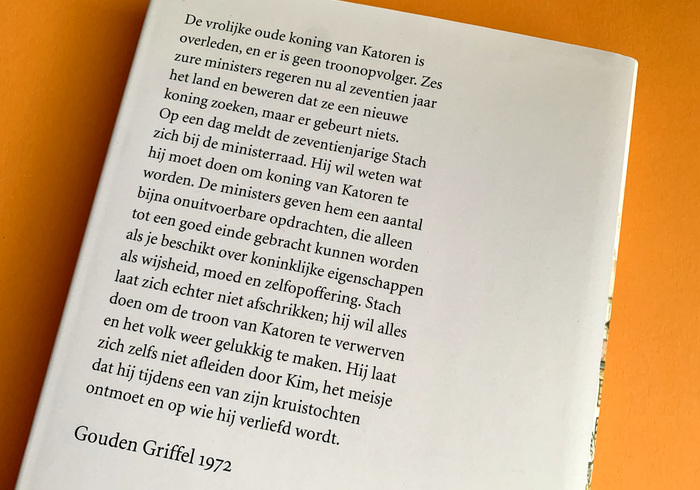 De vrolijke oude koning van Katoren is
overleden, en er is geen troonopvolger. Zes
zure ministers regeren nu al zeventien jaar
het land en beweren dat ze een nieuwe
koning zoeken, maar er gebeurt niets.
Op een dag meldt de zeventienjarige Stach
zich bij de ministerraad. Hij wil weten wat
hij moet doen om koning van Katoren te
worden. De ministers geven hem een aantal
bijna onuitvoerbare opdrachten, die alleen
tot een goed einde gebracht kunnen worden
als je beschikt over koninklijke eigenschappen
als wijsheid, moed en zelfopoffering. Stach
laat zich echter niet afschrikken; hij wil alles
doen om de troon van Katoren te verwerven
en het volk weer gelukkig te maken. Hij laat
zich zelfs niet afleiden door Kim, het meisje
dat hij tijdens een van zijn kruistochten
ontmoet en op wie hij verliefd wordt.
Gouden Griffel 1972